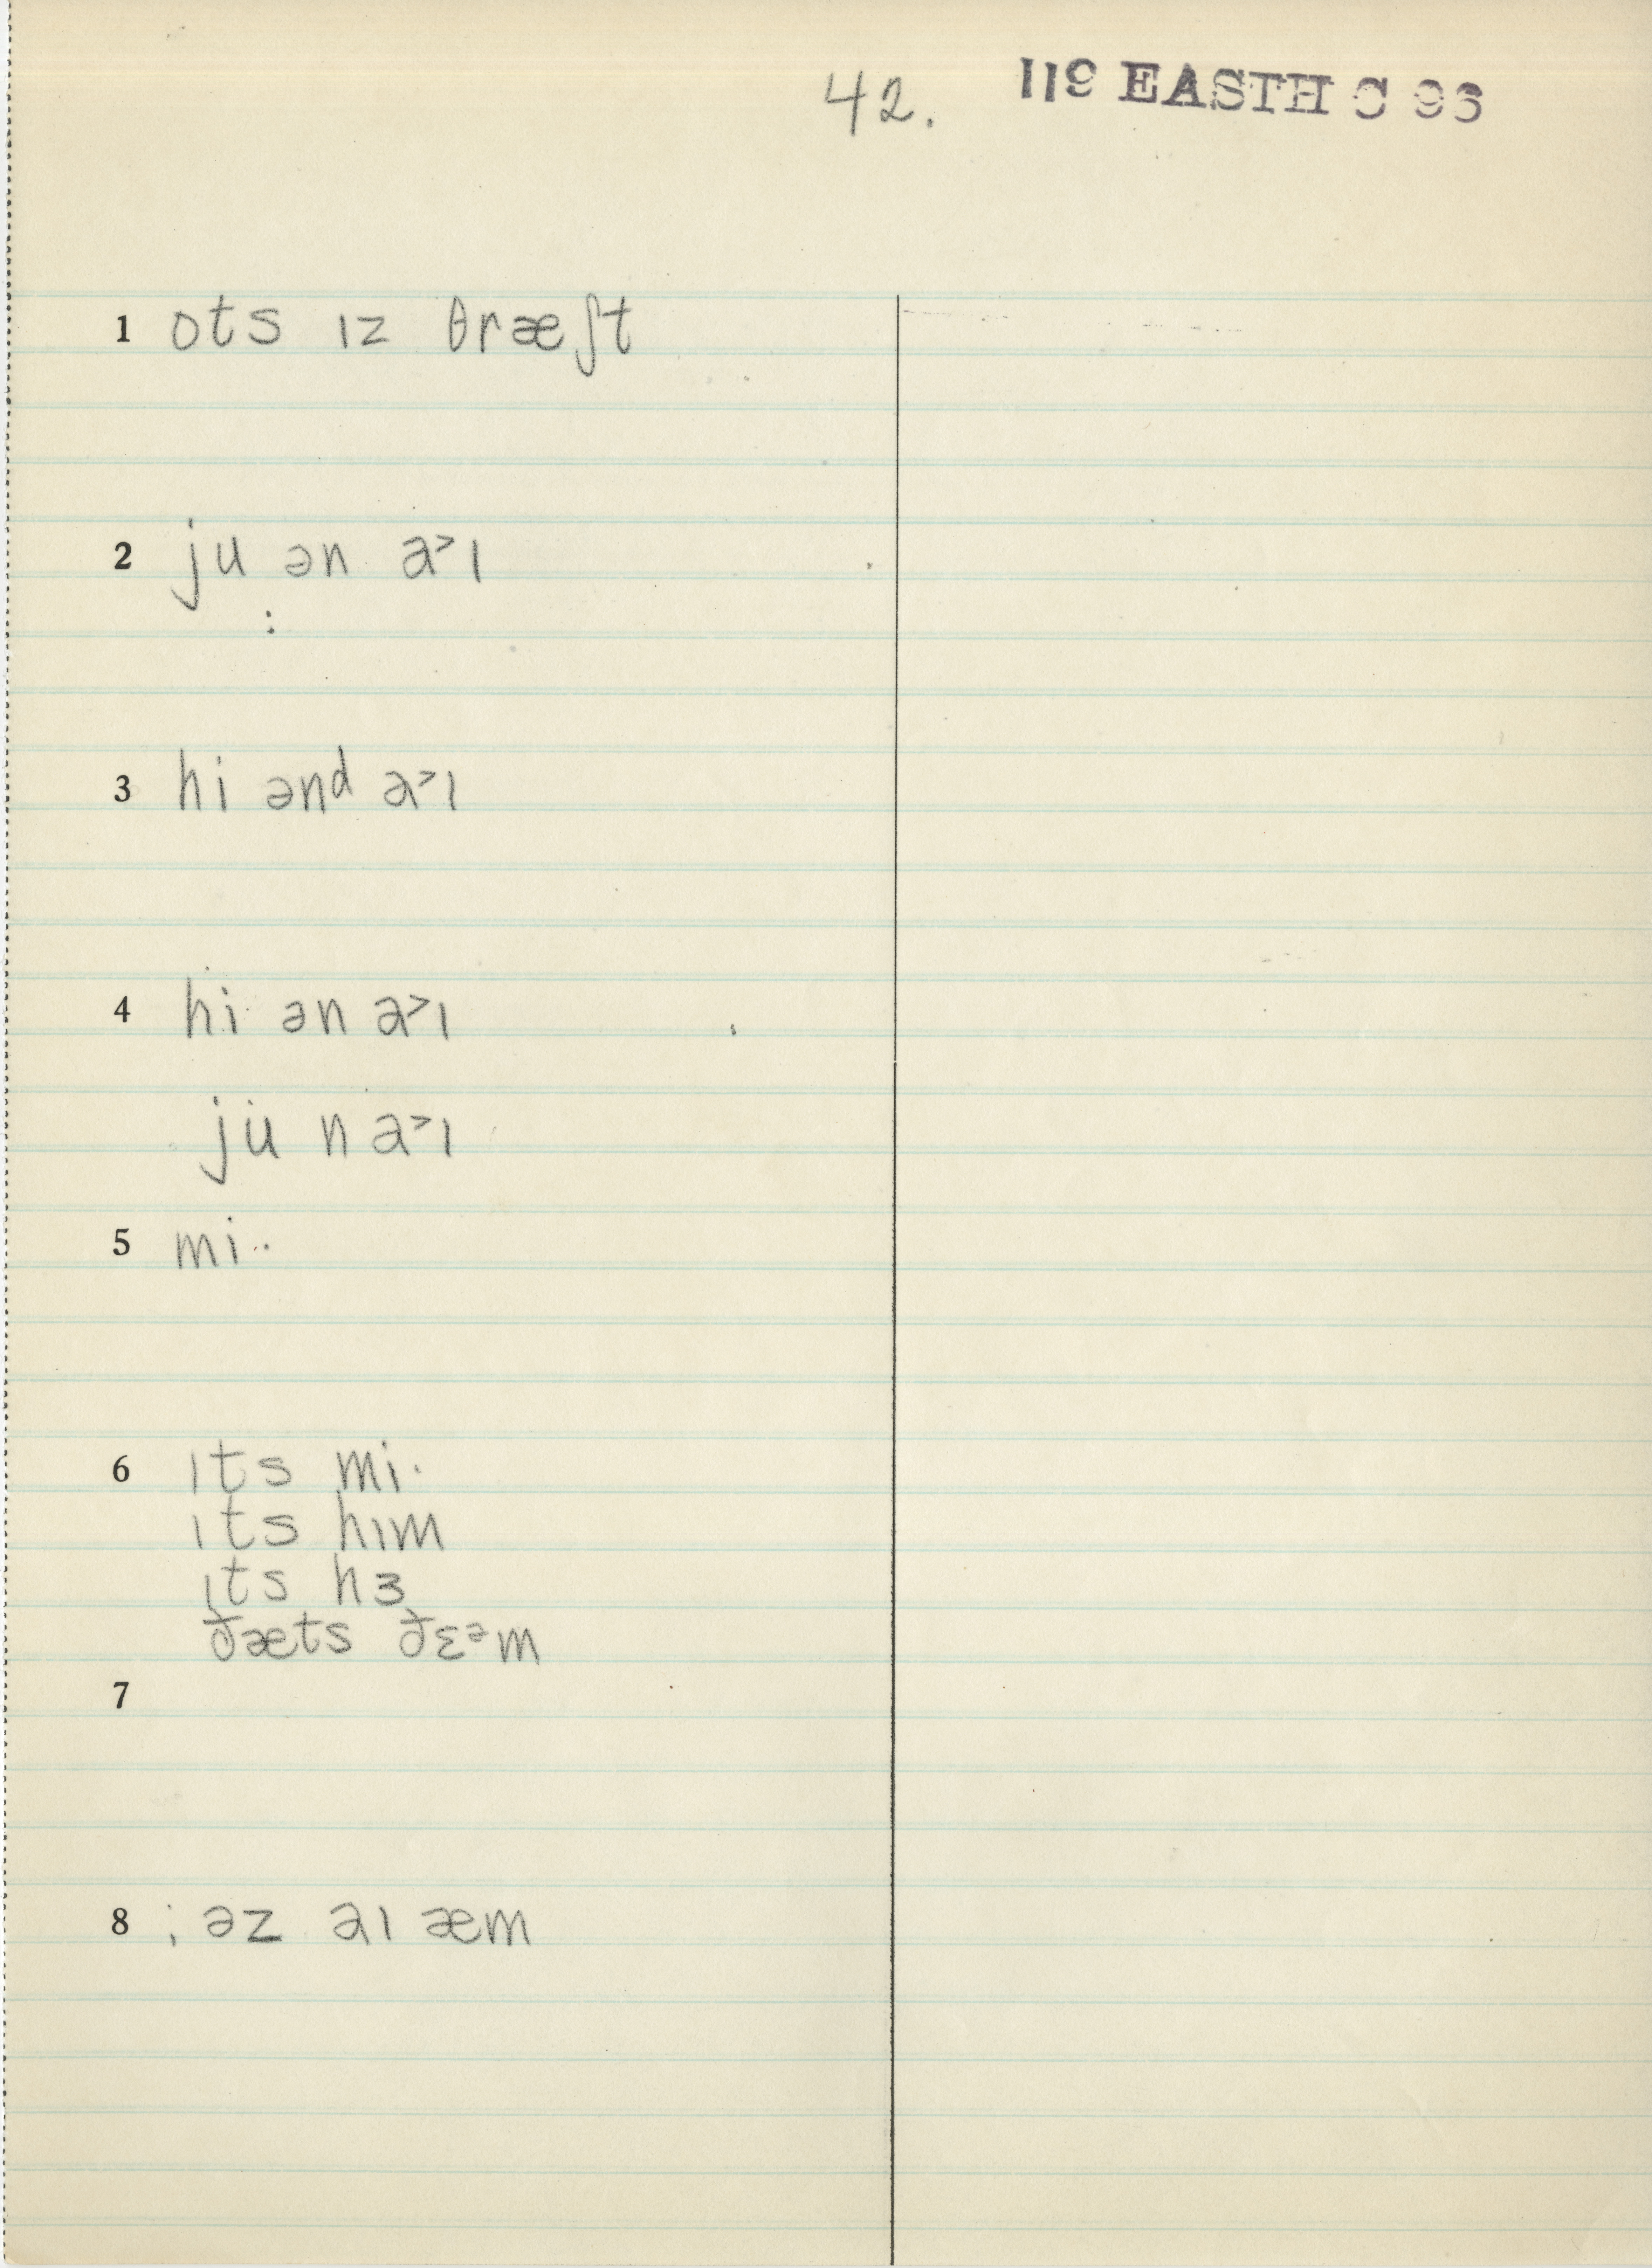 42. 119 EASTH C 96
1 ots ɪz θræʃt
2 ju ən a˃ɪ
:
3 hi ənd a˃ɪ
4 hi ən a˃ɪ
ju n a˃ɪ
5 mi··
6 ɪts mi·
ɪts hɪm
ɪts hɜ
ðæts ðɛᵊm
7
8 ; əz aɪ æm